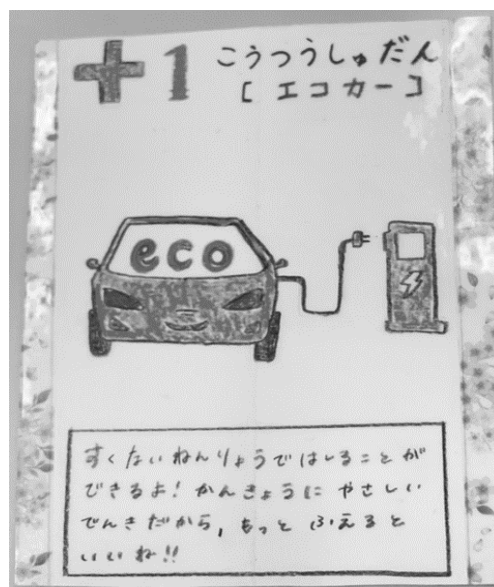 +1 こうつうしゅだん
[エコカー]
eco
すくないねんりょうではしることが
できるよ!かんきょうに やさしい
でんきだから,もっと ふえると
いいね!!